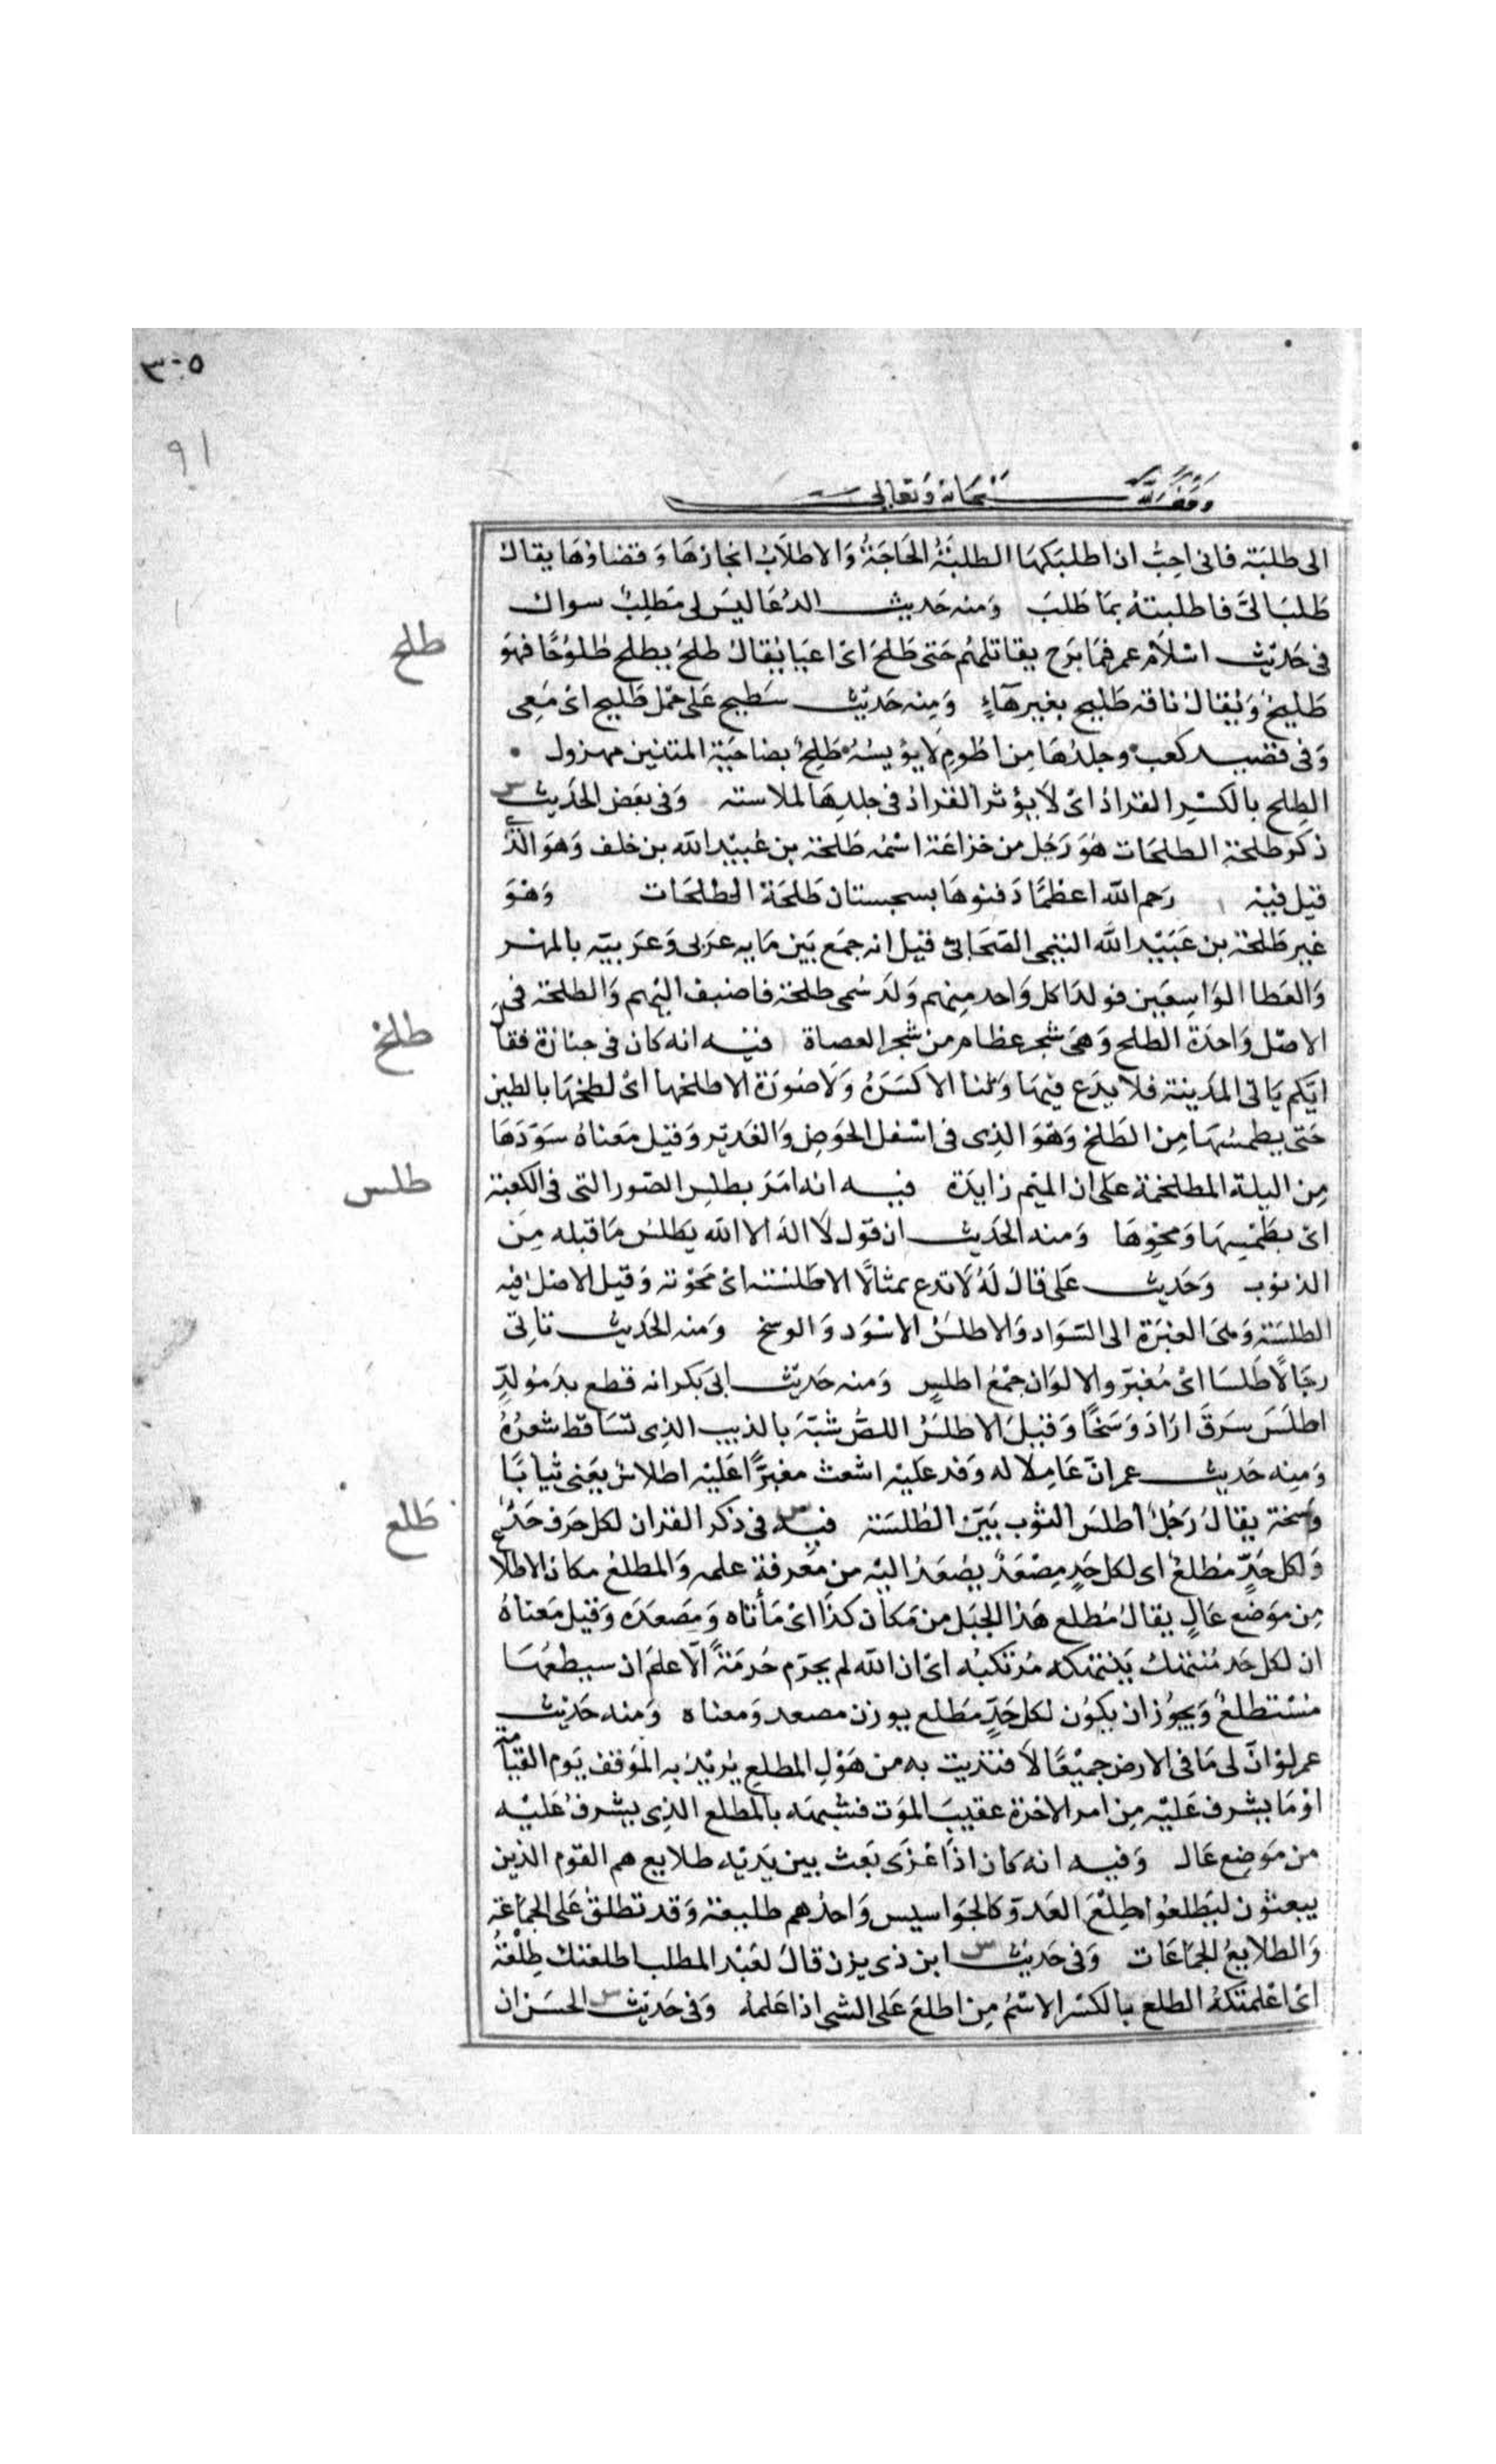 ٣٠٥
٩١
وقف لله سبحانه وتعالى
الى طلبَة فانى احِبُّ ان اطلبَكهَا الطلبَةُ الحَاجَةُ وَالاطلَابُ انجازهَا وَقضاؤهَا يقال
طَلبَ الىَّ فاطلبتهُ بمَا طَلبَ وَمنه حَديث الدُعَا ليسَ لى مَطلِبٌ سواك
طلح
فى حَديث اسْلَام عمر فمَا بَرَح يقاتلهُم حَتى طَلحَ اىْ اعيَا يُقال طلحَ يطلح طُلوُحًا فهوَ
طَليحٌ وَيُقال ناقه طَليح بغير هَآءٍ وَمِنه حَديْث سَطيح عَلى جمَل طَليح اىْ مَعِى
وَفى قصيد كعب وجلدُهَا مِن اطُومٍ لَا يؤيسُهُ طَلِحٌ بضاحيَة المتنين مهزول
الطِلح بالكسْر القرادُ اىْ لَا يؤثر القرادُ فى جلدِهَا لملاسته وَفى بعَض الحَديث
ذكر طلحة الطلحَات هُوَ رَجُل من خزاعَة اسْمُه طَلحة بن عُبيْد الله بن خلف وَهوَ الذى
قيل فيه رَحم الله اعظمًا دَفنوهَا بسجستان طَلحَة الطلحَات وَهْوَ
غير طَلحة بن عَبَيْد الله التيمى الصَحَابىّ قيل انه جمَع بَين مَايه عرَبى وَعرَبيّه بالمهْر
وَالعَطا الوَاسِعَين فولدَ لكل وَاحد مِنهم وَلَد سُمى طلحة فاضيف اليْهم وَالطلحة فى
طلخ
الاصْل وَاحدَة الطلح وَهىَ شجر عظام من شجر العضاة فيْه انه كان فى جنازة فقا
ايّكم يَاتى المَدينة فلا يدَع فيهَا وَثنا الا كسَرَهُ وَلَا صُورَة الا طلخها اىْ لطخهَا بالطين
حَتى يطمسُهَا مِن الطَلخ وَهْوَ الذِى فى اسْفل الحَوضِ وَالغَديْر وَقيل مَعناهُ سَوّدَهَا
طلس
مِن اليلة المطلخمة عَلى ان الميْم زايدَة فيه انه امَرَ بطلس الصّور التى فى الكعبة
اىْ بطَمْسِهَا وَمحْوِهَا وَمنه الحَديث ان قوْل لَا الهَ الا الله يَطلسُ مَا قبله مِنَ
الذنوب وَحَديث عَلى قالَ لهُ لَا تدع تمثالًا الا طَلسْته اىْ مَحَوْته وَقيل الاصْل فيه
الطلسَة وَهىَ الغبرَة الى السّوَاد وَالاطلسُ الاسْوَد وَالوسخ وَمنه الحَديث تاتى
رجَالًا طُلسَا اىْ مُغبَرّو الالوَان جمْعُ اطلس وَمنه حَديْث ابى بَكر انه قطع يدَ مُولّدٍ
اطلَسَ سَرقَ ارَادَ وَسَخًا وَقيْلَ الاطلسُ اللصُّ شبّهَ بالذيب الذِى تسَاقط شعرُهُ
وَمِنه حَديث عمر انّ عَامِلا له وَفد عَليْه اشعث مغبرًّا عَليْه اطلاسٌ يَعْنى ثيابًا
طَلع
وَسخة يقالُ رَجُلٌ اطلسَ الثوب بَيّن الطُلسَة فيْه فى ذكر القران لكل حَرف حَدٌّ
وَلكل حَدٍّ مُطلعٌ اى لكل حَدٍ مِصْعَدٌ يصْعَدُ اليْه من مَعرفة علمه وَالمطلعُ مكان الاطلا
مِن موَضع عَالٍ يقالُ مُطلع هَذا الجبَل من مَكان كذا اىْ مَأتاه وَمَصعَدَه وَقيْل مَعناهُ
ان لكل حَد مُنتهك يَنتهكه مُرتكبُه اىْ ان الله لم يحرّم حُرمَةً الّا علمَ ان سيطلعُهَا
مُسْتطلعٌ وَيجُوْز ان يكوُن لكل حَدٍّ مَطلع بوزن مصعد وَمعناه وَمنه حَديْث
عمر لوْ انّ لى مَا فى الارض جميْعًا لَافتديت به من هَوْلِ المطلع يُريْدُ به الموَقف يَوم القيَامة
اوْ مَا يشرف عَليْه مِن امر الاخرة عقيبَ الموَت فشبهه بالمطلع الذِى يشرفُ عَليْه
من مَوضِع عَال وَفيه انه كان اذَا غزَى بَعث بين يَديْه طلايع هم القوْم الذين
يبعثون ليَطلعُوا طِلْعَ العَدوّ كالجوَاسيس وَاحدُهم طليعة وَقد تطلقُ عَلى الجمَاعَة
وَالطلايعُ الجمَاعَات وَفى حَديْث ابن ذى يزن قالَ لعَبْد المطلب اطلعتك طِلْعَهُ
اىْ اعْلمتكهُ الطلع بالكسْر الاسْمُ مِن اطلعَ عَلى الشى اذا عَلمهُ وَفى حَديْث الحسَن ان